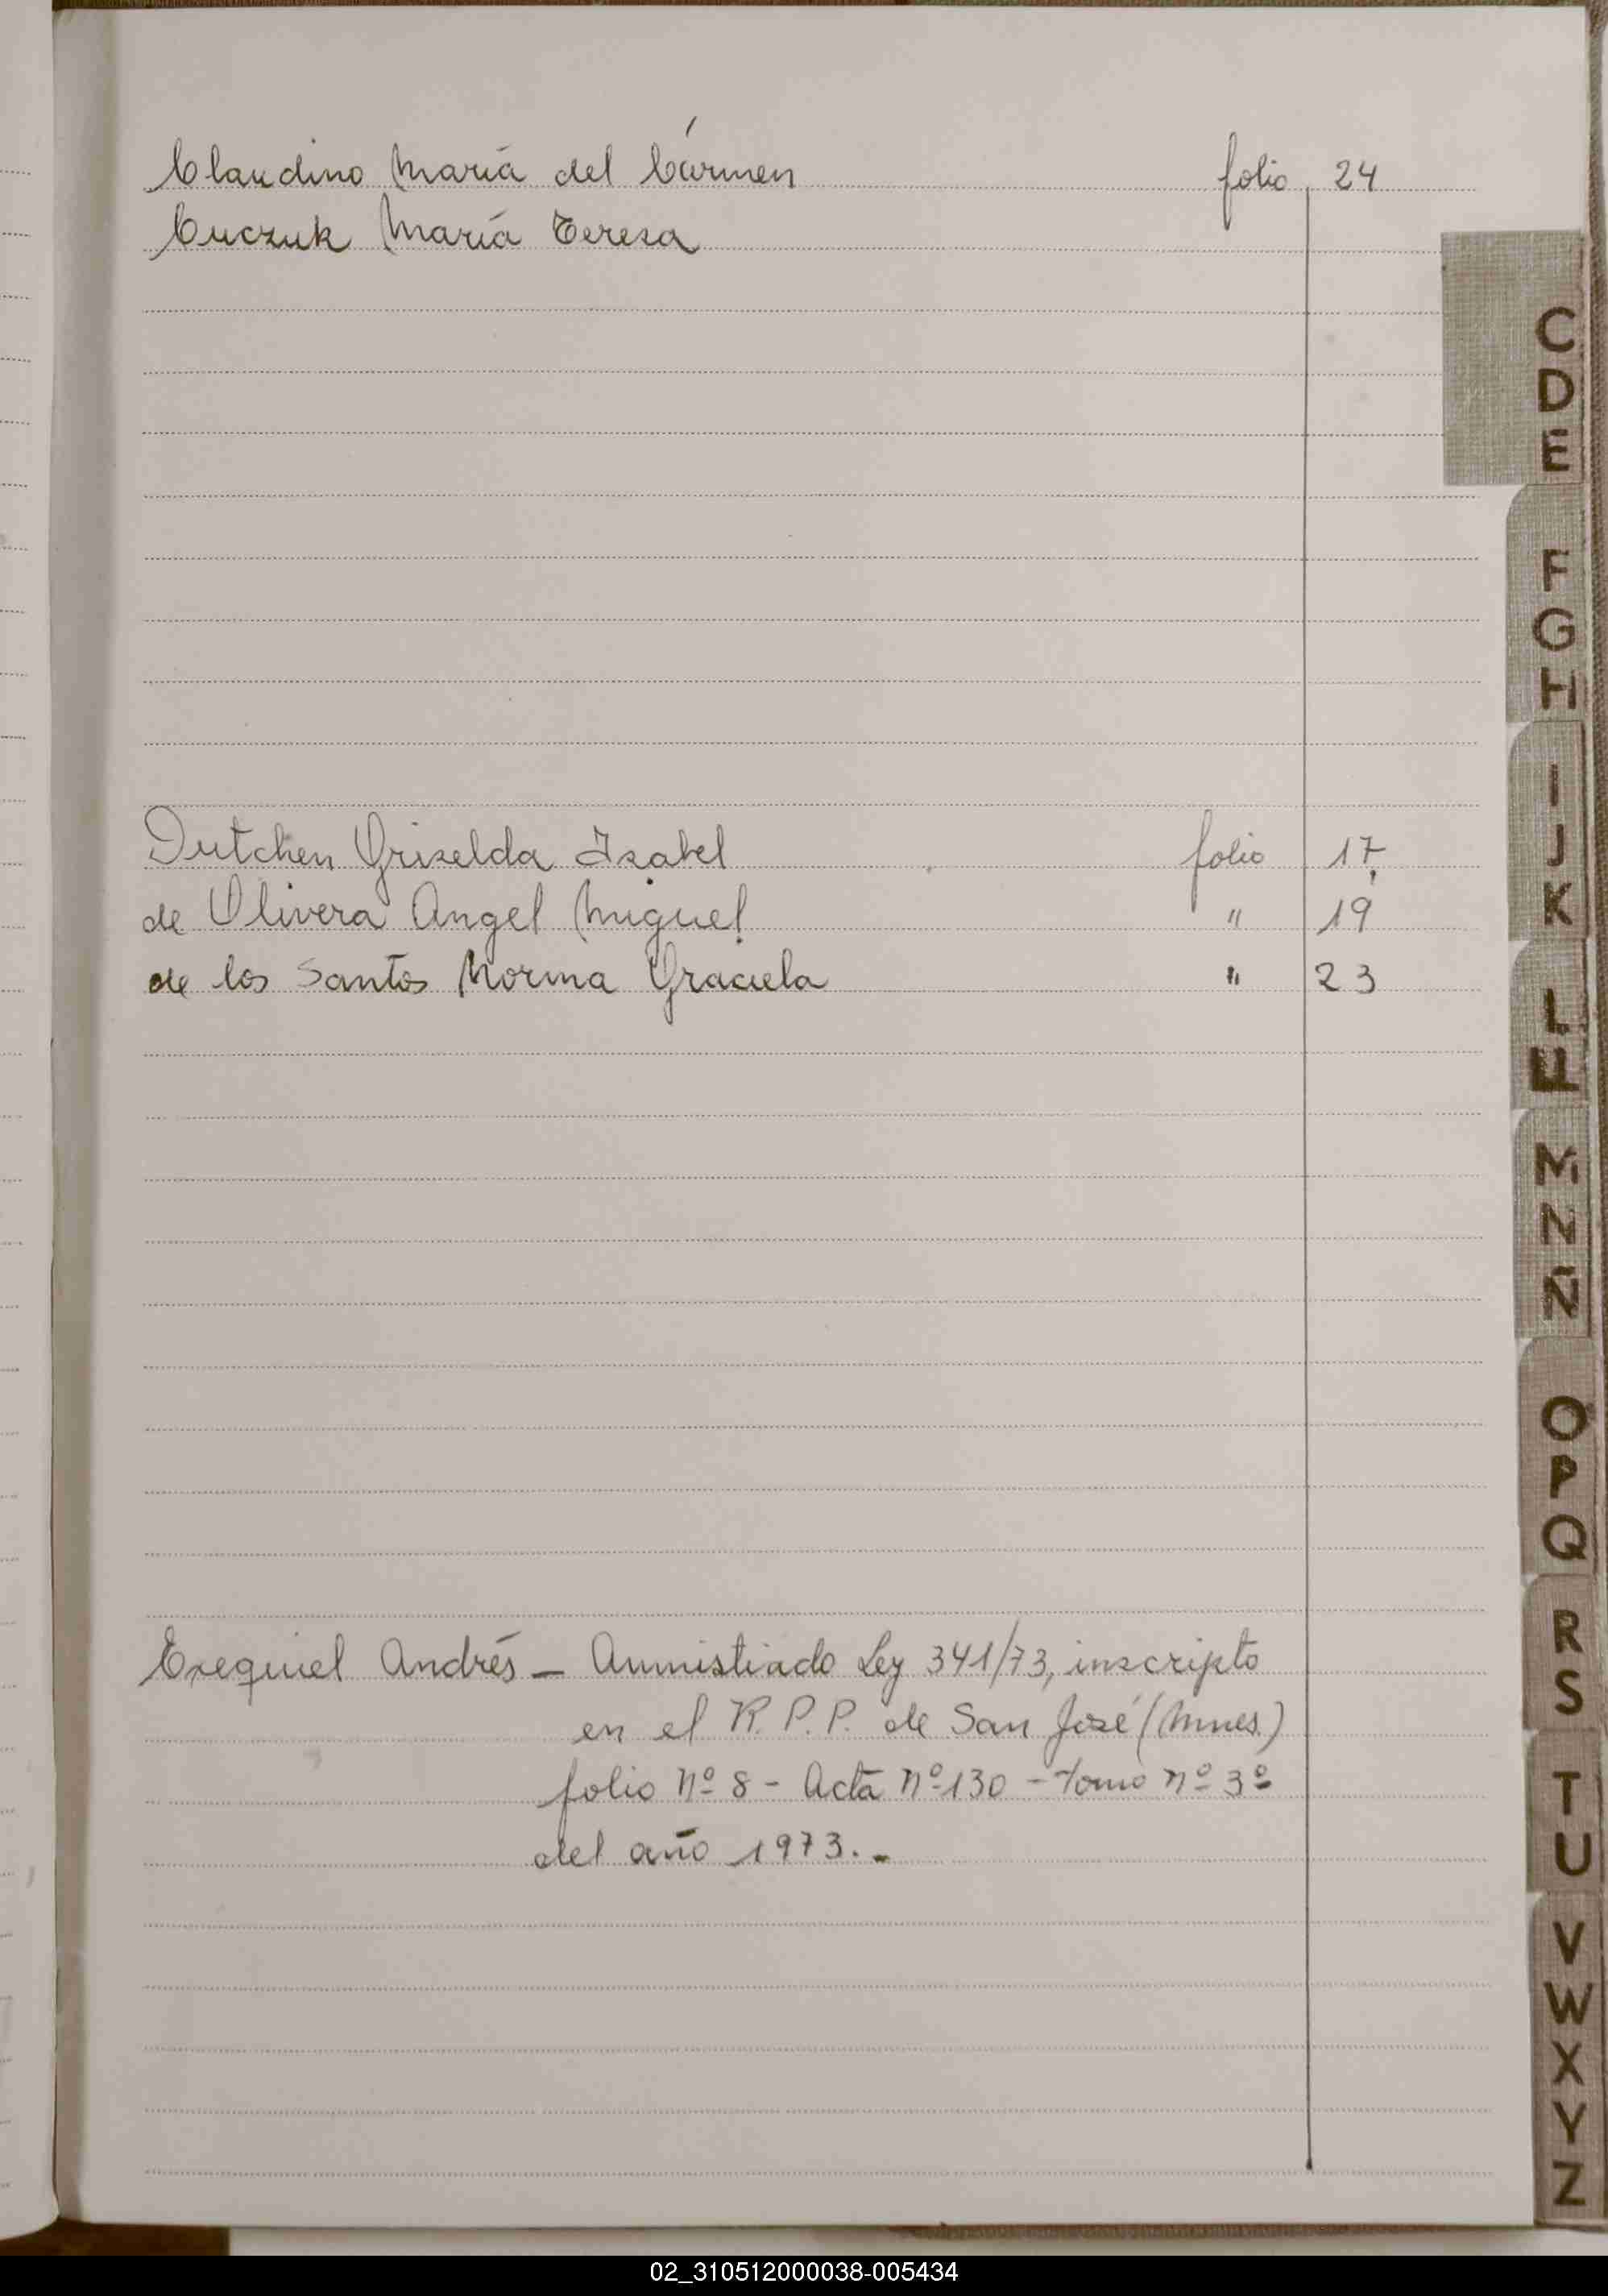 Claudino María del Cármen folio 24
Cuczuk María Teresa
Dutchen Griselda Isabel folio 17
de Olivera Angel Miguel " 19
de los Santos Norma Graciela " 23
Exequiel Andrés - Amnistiado Ley 341/73, inscripto
en el R.P.P. de San José (Mnes.)
folio Nº 8 - Acta Nº 130 - Tomo nº 3º
del año 1973.-
C
D
E
F
G
H
I
J
K
L
M
N
Ñ
O
P
Q
R
S
T
U
V
W
X
Y
Z
02_310512000038-005434